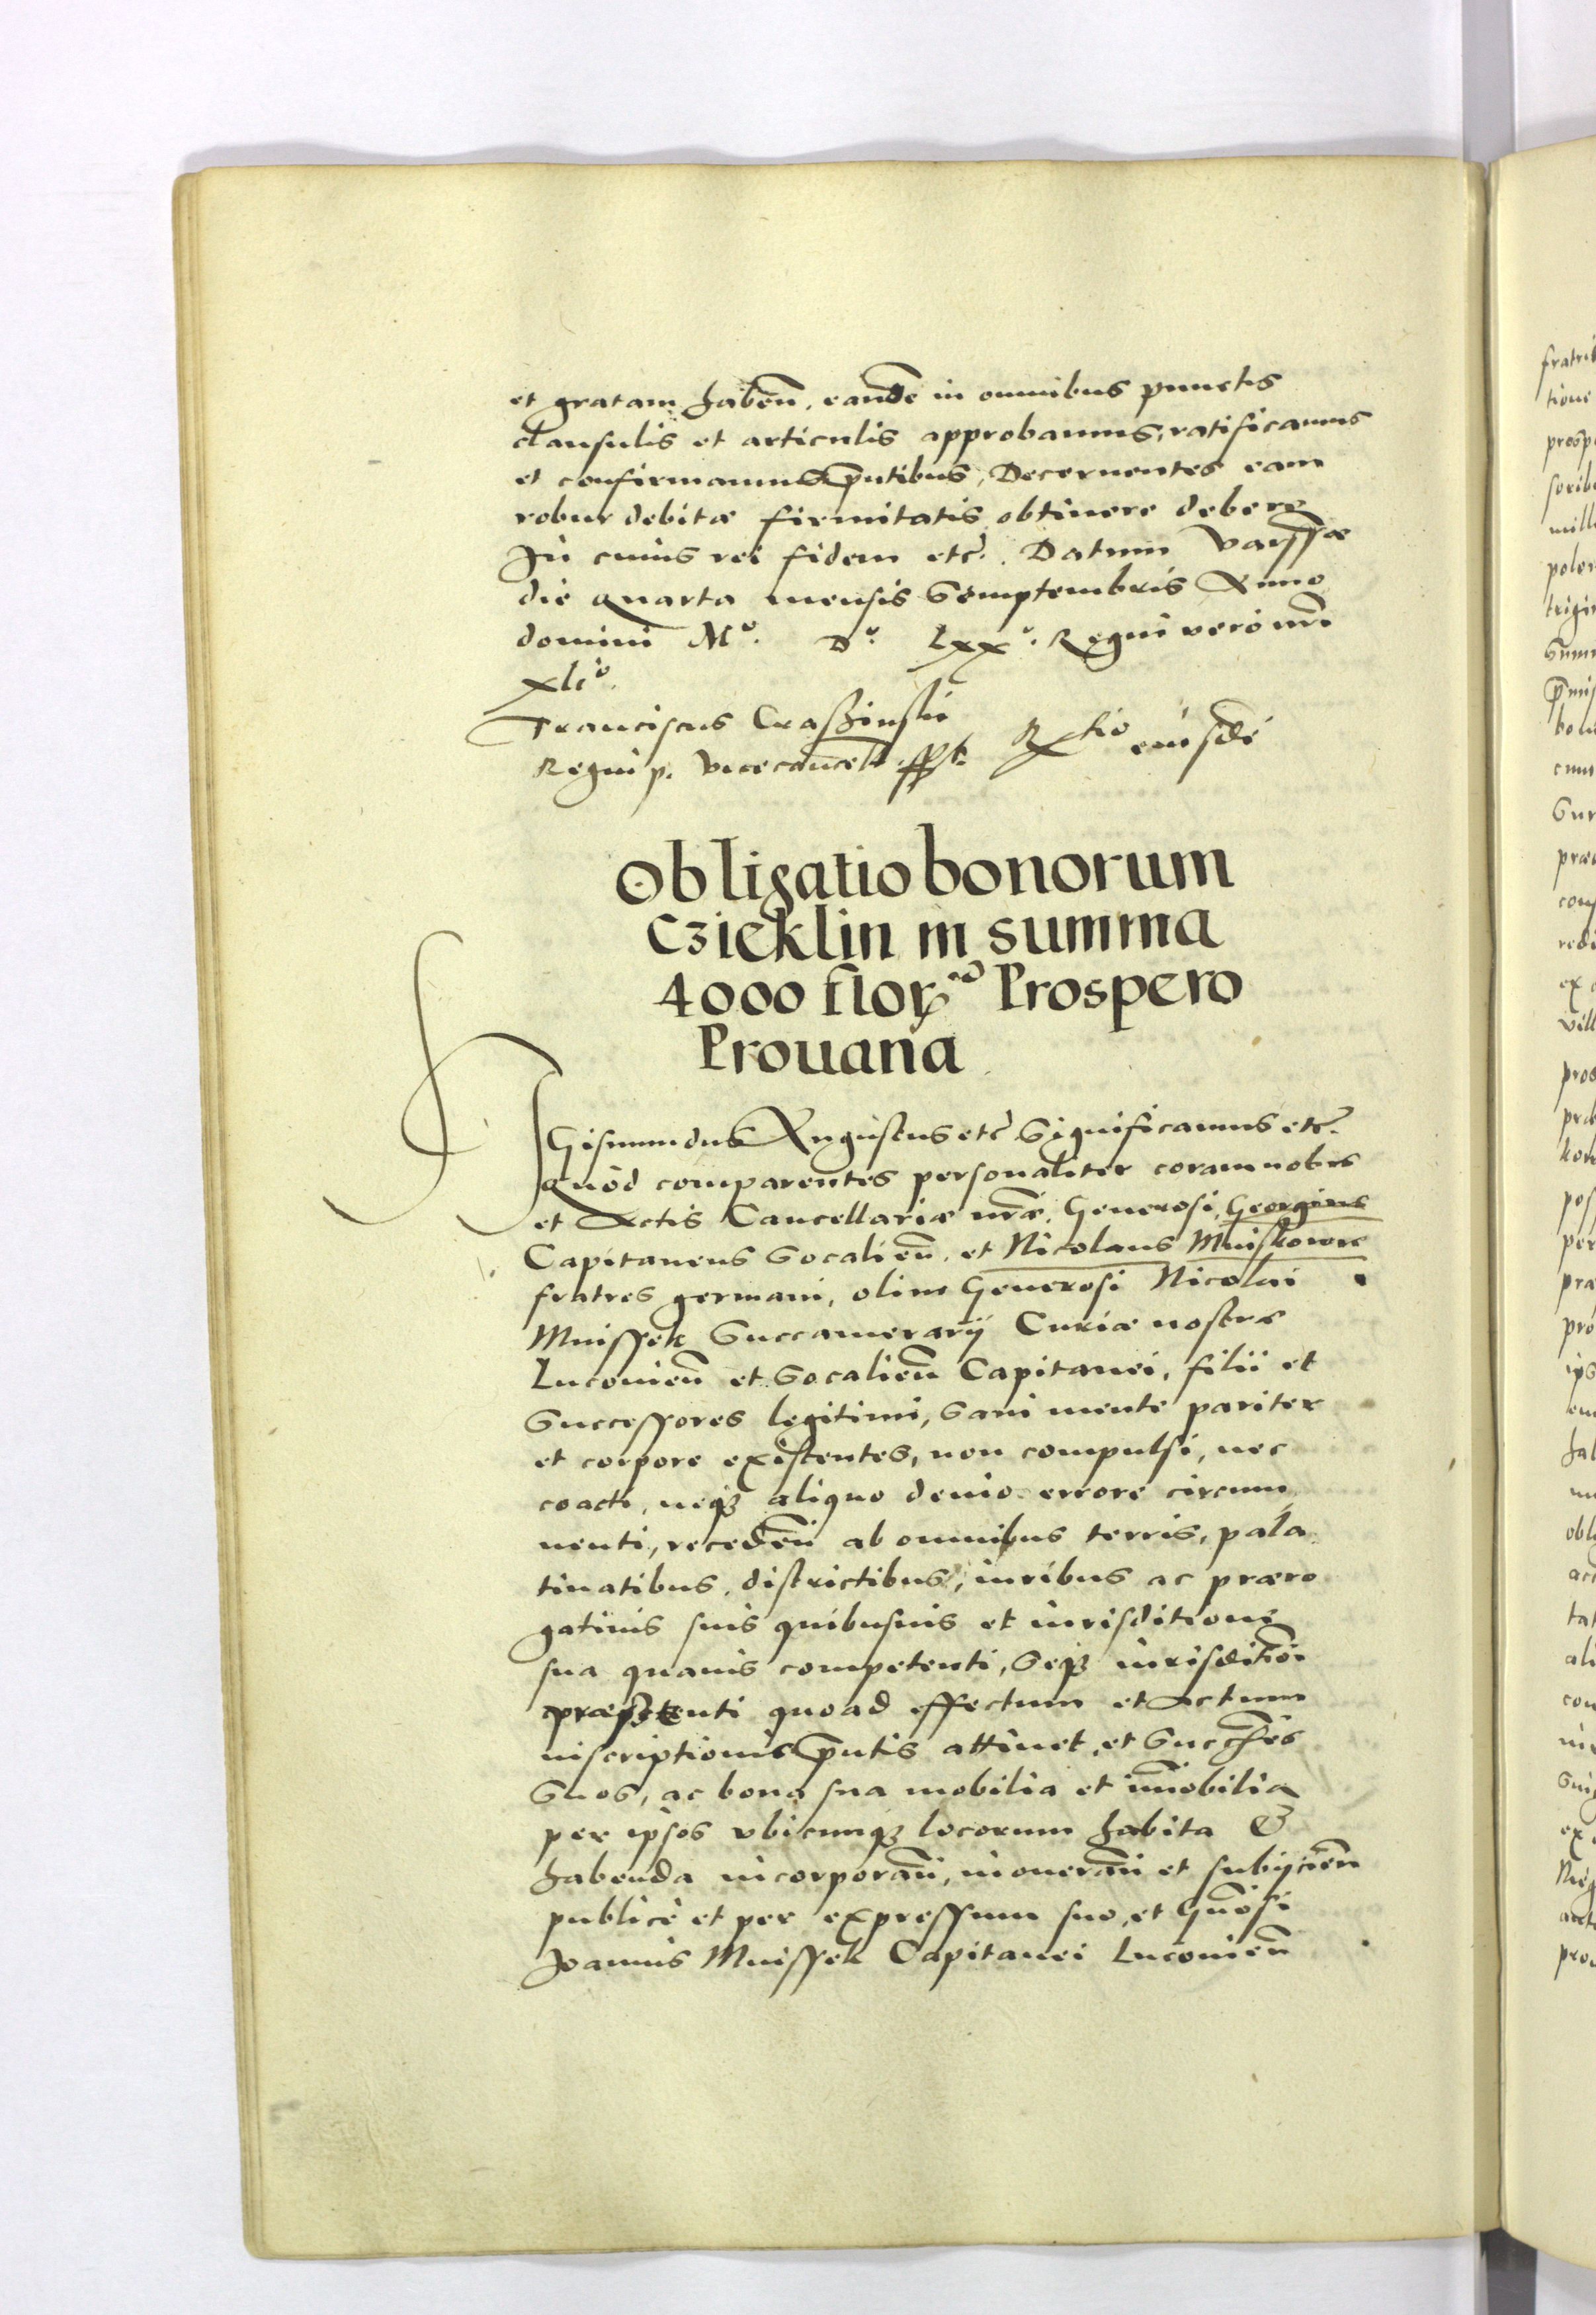 et gratam habeñ. eandē in omnibus punctis
clausulis et articulis approbamus, ratificamus
et confirmamus p̃ntibus, Decernentes eam
robur debitæ firmitatis obtinere debere
In cuius rei fidem etc̃. Datum Varssæ
die quarta mensis Semptembris Anno
domini Mº. Dº. Lxxº. Regni vero nr̃i
xliº.
Franciscus Craszinski
Regni p. vicecancell. sspt. Rtio eiusdē
Obligatio bonorum
Czieklin in summa
4000 flor. Prospero
Prouana
SGismundus Augustus etc̃ Significamus etc̃.
Quòd comparentes personaliter coram nobis
et Actis Cancellariæ nr̃æ, Generosi, Georgius
Capitaneus Socalieñ. et Nicolaus Mniskowie
fratres germani, olim Generosi Nicolai
Mnissek Succamerarij Curiæ nostræ
Lucovieñ et Socalieñ Capitanei, filii et
Successores legitimi, Sani mente pariter
et corpore existentes, non compulsi, nec
coacti, neqȝ aliquo deuio errore circum
uenti, recedeñ ab omnibus terris, pala
tinatibus, districtibus, iuribus ac præro
gatiuis suis quibusuis et iurisditione
sua quauis competenti, Seqȝ iurisditioi
præsenti quoad effectum et Actum
inscriptionis p̃ntis attinet, et Succr̃es
Suos, ac bona sua mobilia et im̃obilia
per ipsos vbicunqȝ locorum habita &
habenda incorporañ, inonerañ et subijcieñ
publicè et per expressum suo, et Gñosi
Joannis Mnissek Capitanei Lucovieñ